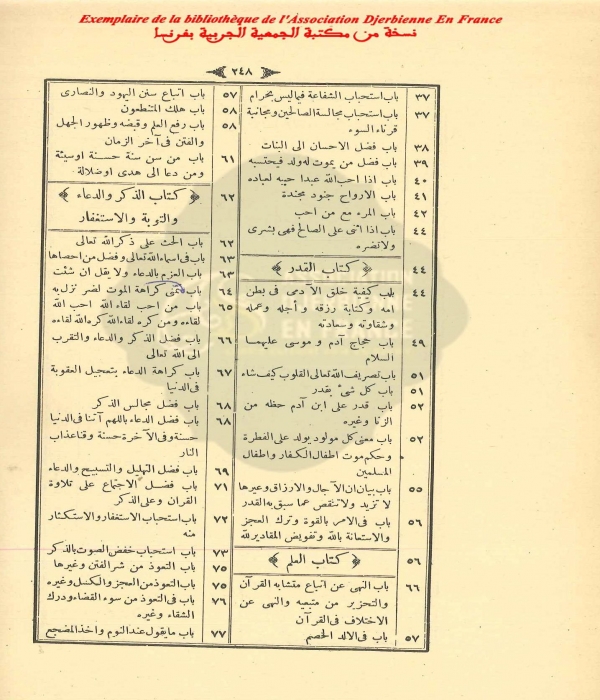 Exemplaire de la bibliothèque de l'Association Djerbienne En France
نسخة من مكتبة الجمعية الجربية بفرنسا
٢٤٨
٣٧ باب استحباب الشفاعة فيما ليس بحرام
٣٧ باب استحباب مجالسة الصالحين ومجانبة
قرناء السوء
٣٨ باب فضل الاحسان الى البنات
٣٩ باب فضل من يموت له ولد فيحتسبه
٤٠ باب اذا احب الله عبدا حببه لعباده
٤١ باب الارواح جنود مجندة
٤٢ باب المرء مع من احب
٤٤ باب اذا اثنى على الصالح فهى بشرى
ولا تضره
٤٤ ﴿ كتاب القدر ﴾
٤٤ باب كيفية خلق الآدمى فى بطن
امه وكتابة رزقه و أجله وعمله
وشقاوته وسعادته
٤٩ باب حجاج آدم و موسى عليهما
السلام
٥١ باب تصريف الله تعالى القلوب كيف شاء
٥١ باب كل شئ بقدر
٥٢ باب قدر على ابن آدم حظه من
الزنا وغيره
٥٢ باب معنى كل مولود يولد على الفطرة
وحكم موت اطفال الكفار واطفال
المسلمين
٥٥ باب بيان ان الآجال والارزاق وغيرها
لا تزيد ولا تنقص عما سبق به القدر
٥٦ باب فى الامر بالقوة وترك العجز
والاستعانة بالله وتفويض المقادير لله
٥٦ ﴿ كتاب العلم ﴾
٦٦ باب النهى عن اتباع متشابه القرآن
والتحزير من متبعيه والنهى عن
الاختلاف فى القرآن
٥٧ باب فى الالد الخصم
٥٧ باب اتباع سنن اليهود والنصارى
٥٨ باب هلك المتنطعون
٥٨ باب رفع العلم وقبضه وظهور الجهل
والفتن فى آخر الزمان
٦١ باب من سن سنة حسنة اوسيئة
ومن دعا الى هدى اوضلالة
٦٢ ﴿ كتاب الذكر والدعاء ﴾
والتوبة والاستغفار
٦٢ باب الحث على ذكر الله تعالى
٦٣ باب فى اسماء الله تعالى وفضل من احصاها
٦٣ باب العزم بالدعاء ولا يقل ان شئت
٦٤ باب تمنى كراهة الموت لضر نزل به
٦٥ باب من احب لقاء الله احب الله
لقاءه ومن كره لقاء الله كره الله لقاءه
٦٦ باب فضل الذكر والدعاء والتقرب
الى الله تعالى
٦٧ باب كراهة الدعاء بتعجيل العقوبة
فى الدنيا
٦٨ باب فضل مجالس الذكر
٦٨ باب فضل الدعاء باللهم آتنا فى الدنيا
حسنة وفى الآخرة حسنة وقنا عذاب
النار
٦٩ باب فضل التهليل والتسبيح والدعاء
٧١ باب فضل الاجتماع على تلاوة
القران وعلى الذكر
٧٢ باب استحباب الاستغفار والاستكثار
منه
٧٣ باب استحباب خفض الصوت بالذكر
٧٥ باب التعوذ من شر الفتن وغيرها
٧٥ باب التعوذ من العجز والكسل وغيره
٧٦ باب فى التعوذ من سوء القضاء ودرك
الشقاء وغيره
٧٧ باب ما يقول عند النوم واخذ المضجع